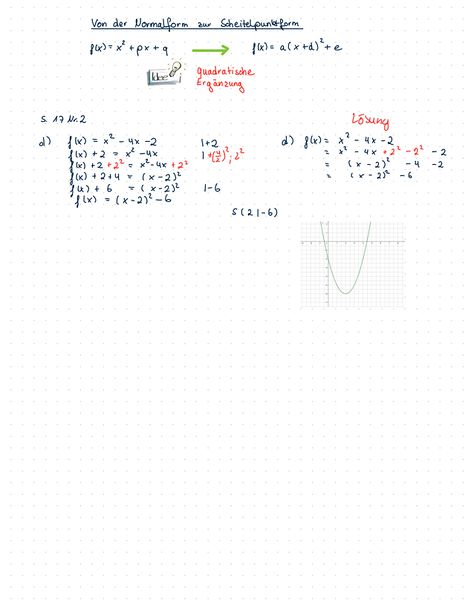 Von der Normalform zur Scheitelpunktform
f(x) = x² + px + q → f(x) = a(x+d)² + e
Idee
quadratische
Ergänzung
S. 17 Nr. 2
d) f(x) = x² - 4x - 2 | + 2
f(x) + 2 = x² - 4x | + (4/2)²; 2²
f(x) + 2 + 2² = x² - 4x + 2²
f(x) + 2 + 4 = (x - 2)²
f(x) + 6 = (x - 2)² | - 6
f(x) = (x - 2)² - 6
S (2 | - 6)
Lösung
d) f(x) = x² - 4x - 2
= x² - 4x + 2² - 2² - 2
= (x - 2)² - 4 - 2
= (x - 2)² - 6